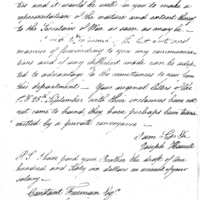 ties and it would be well in you to make a
representation of the nature and extent thereof
to the Secretary of War as soon as may be.
manner of forwarding to you any communica-
tions and if any different mode can be adopt-
ed to advantage to the remittances to you from
this department — Your original letters of the
1st & 25th September with their enclosures have not
yet come to hand, they have perhaps been trans
mitted by a private conveyance.
I am Sir &c
Joseph Howell
P.S. I have paid your Brother the draft of one
hundred and sixty six dollars on account of your
salary.
Constant Freeman Esqr